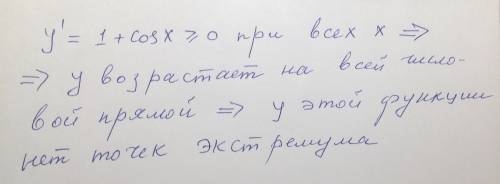 y' = 1 + cosx ⩾ 0 при всех x ⇒
⇒ y возрастает на всей число-
вой прямой ⇒ у этой функции
нет точек экстремума